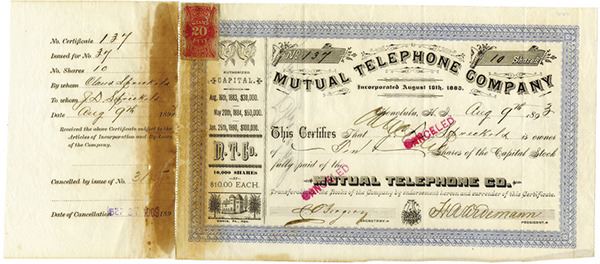 No. Certificate 137
Issued for No. 37
No. Shares 10
By whom Claus Spreckels
To whom J. D. Spreckels
Date Aug 9th 189
Received the above Certificate subject to the
Articles of Incorporation and By-Laws
of the Company.
Cancelled by issue of No.
Date of Cancellation 189
20
AUTHORIZED
CAPITAL.
Aug. 16th, 1883, $30,000.
May 20th, 1884, $50,000.
Jan. 25th, 1890, $100,000.
M. T. Co.
10,000 SHARES
—AT—
$10.00 EACH.
No. 137
10 Shares
MUTUAL TELEPHONE COMPANY
Incorporated August 16th, 1883.
Honolulu, H. I. Aug 9th 1893
This Certifies That J. D. Spreckels is owner
of Ten Shares of the Capital Stock
fully paid of the
CANCELED
CANCELED
MUTUAL TELEPHONE CO.
Transferable on the Books of the Company by indorsement hereon and surrender of this Certificate.
SECRETARY.
PRESIDENT.